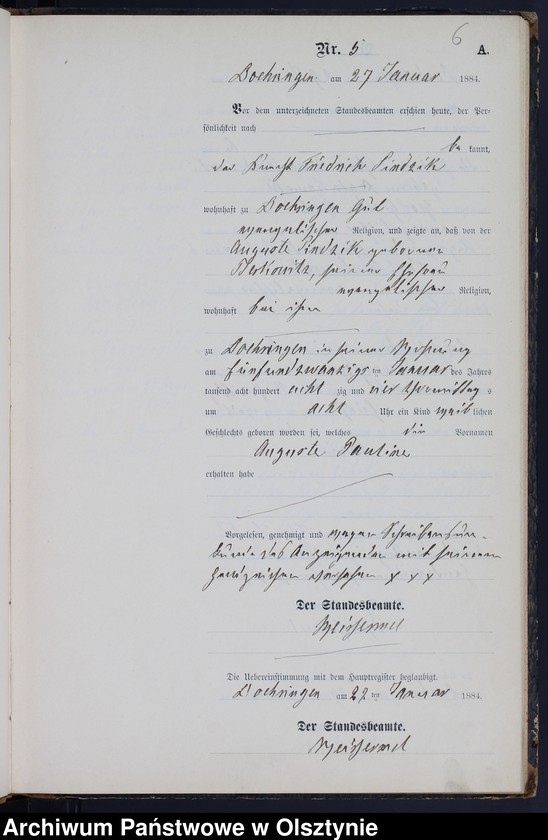 6
Nr. 5 A.
Doehringen am 27 Januar 1884.
Vor dem unterzeichneten Standesbeamten erschien heute, der Per-
sönlichkeit nach
be kannt,
der Knecht Friedrich Sindzik
wohnhaft zu Doehringen Gut
evangelischer Religion, und zeigte an, daß von der
Auguste Sindzik geborenen
Berkowitz, seiner Ehefrau
evangelischer Religion,
wohnhaft bei ihm
zu Doehringen in seiner Wohnung
am fünfundzwanzigs ten Januar des Jahres
tausend acht hundert acht zig und vier Vormittag s
um acht Uhr ein Kind weib lichen
Geschlechts geboren worden sei, welches die Vornamen
Auguste Pauline
erhalten habe
Vorgelesen, genehmigt und wegen Schreibensun-
kunde des Anzeigenden mit seinem
Handzeichen versehen x x x
Der Standesbeamte.
Die Uebereinstimmung mit dem Hauptregister beglaubigt.
Doehringen am 27 ten Januar 1884.
Der Standesbeamte.
Archiwum Państwowe w Olsztynie